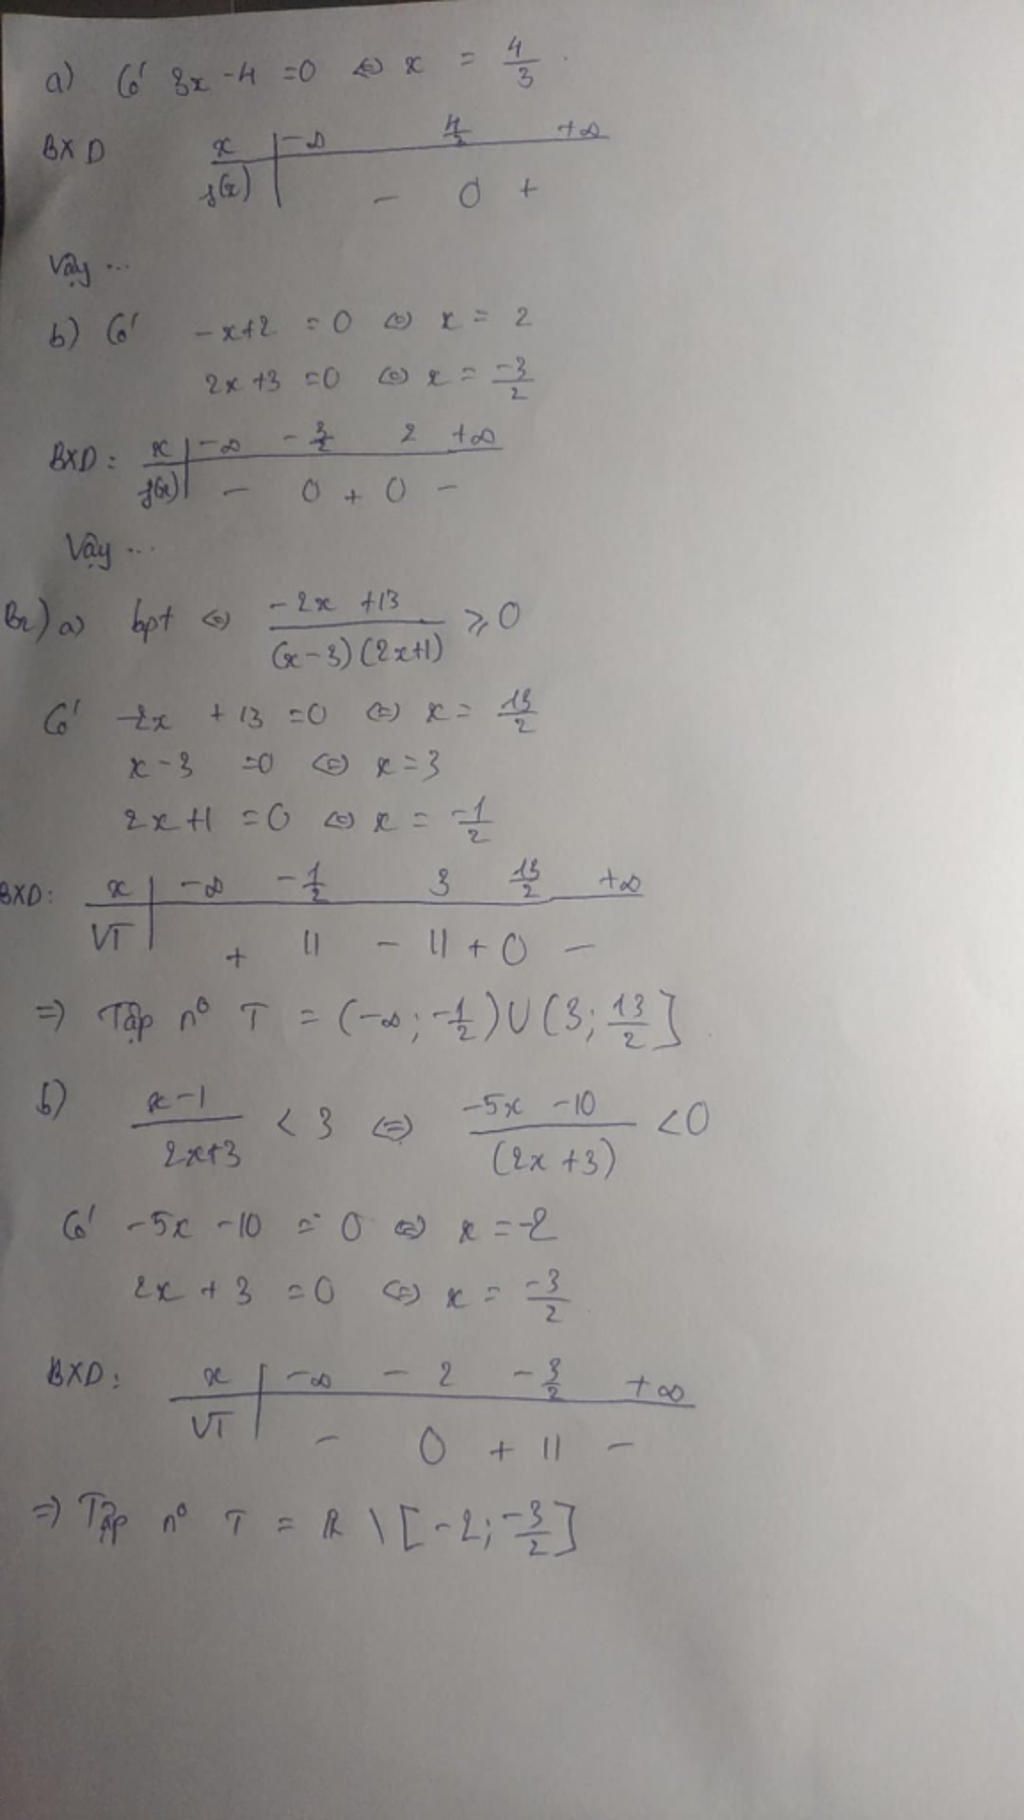 a) Có 3x - 4 = 0 ⇔ x = 4/3.
BXD x | -∞ 4/3 +∞
f(x) | - 0 +
Vậy ...
b) Có -x+2 = 0 ⇔ x = 2
2x+3 = 0 ⇔ x = -3/2
BXD: x | -∞ -3/2 2 +∞
f(x) | - 0 + 0 -
Vậy ...
B2) a) bpt ⇔ (-2x +13)/((x-3)(2x+1)) ⩾ 0
Có -2x + 13 = 0 ⇔ x = 13/2
x - 3 = 0 ⇔ x = 3
2x+1 = 0 ⇔ x = -1/2
BXD: x | -∞ -1/2 3 13/2 +∞
VT | + || - || + 0 -
=> Tập nº T = (-∞; -1/2) ∪ (3; 13/2].
b) (x-1)/(2x+3) < 3 ⇔ (-5x -10)/((2x+3)) < 0
Có -5x -10 = 0 ⇔ x = -2
2x + 3 = 0 ⇔ x = -3/2
BXD: x | -∞ -2 -3/2 +∞
VT | - 0 + || -
=> Tập nº T = R \ [-2; -3/2]